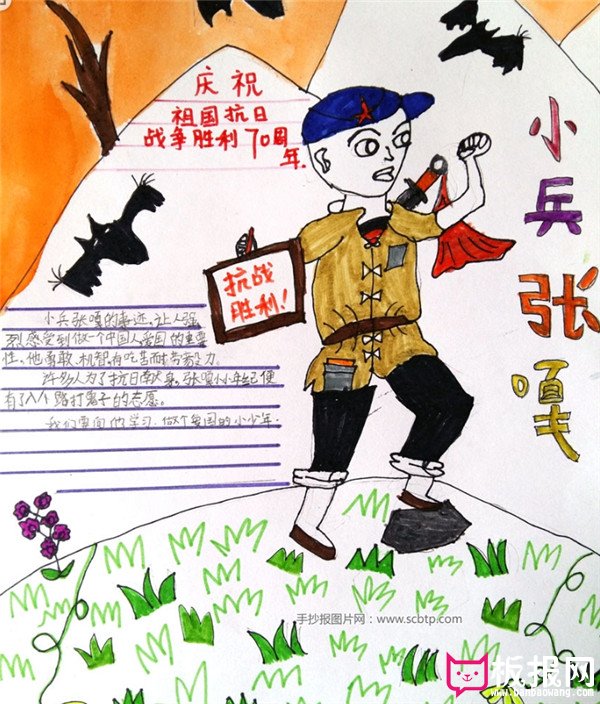 庆祝
祖国抗日
战争胜利70周
年.
小兵张嘎
抗战
胜利!
小兵张嘎的事迹,让人强
烈感受到做一个中国人爱国的重要
性,他勇敢、机智,有吃苦耐劳毅力。
许多人为了抗日献身,张嘎小小年纪便
有了 踏打鬼子的志愿。
我们要向他学习,做个爱国的小少年.
手抄报图片网:www.scbtp.com
板报网
www.banbaowang.com